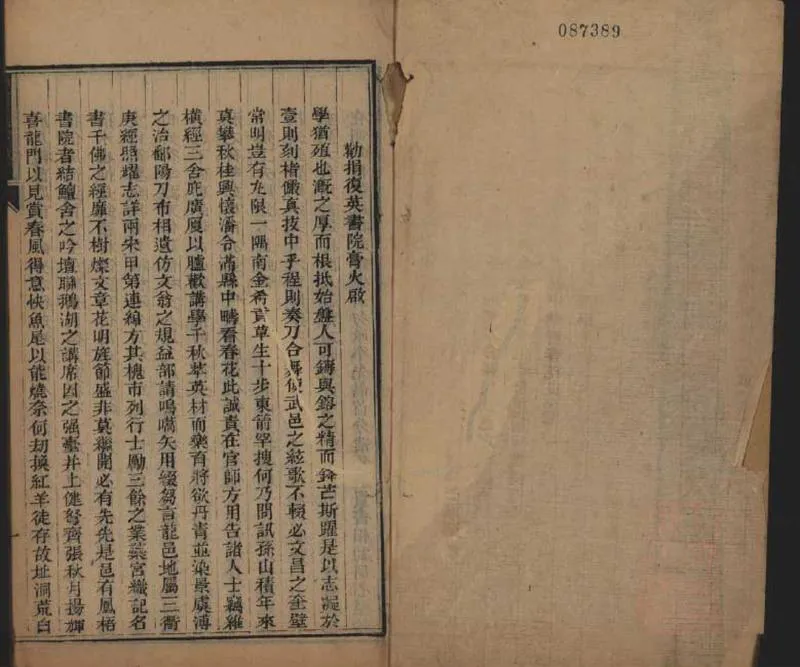 087389
勸捐復英書院膏火啟
學猶殖也漑之厚而根抵始盤人可鑄與鎔之精而鋒芒斯躍是以志凝於
壹則刻楮儼真技中乎程則奏刀合舞使武邑之絃歌不輟必文昌之奎壁
常明豈有允限一隅南金希貢草生十步東箭罕搜何乃問訊孫山積年來
真攀秋桂興懷潘令滿縣中疇看春花此誠責在官師方用告諸人士竊維
橫經三舍庇廣廈以臚歡講學千秋萃英材而樂育將欲丹青並染景虞溥
之治鄱陽刀布相遺仿文翁之規益部請鳴嚆矢用綴芻言龍邑地屬三衢
庚經照耀志詳兩宋甲第連綿方其槐市列行士勵三餘之業蘂宮織記名
書千佛之經靡不樹燦文章花明旌節盛非莫繼開必有先先是邑有鳳梧
書院者結鱣舍之吟壇聯鵝湖之講席因之强臺井上健弩齊張秋月揚輝
喜龍門以見賞春風得意快魚尾以能燒奈何劫換紅羊徒存故址洞荒白